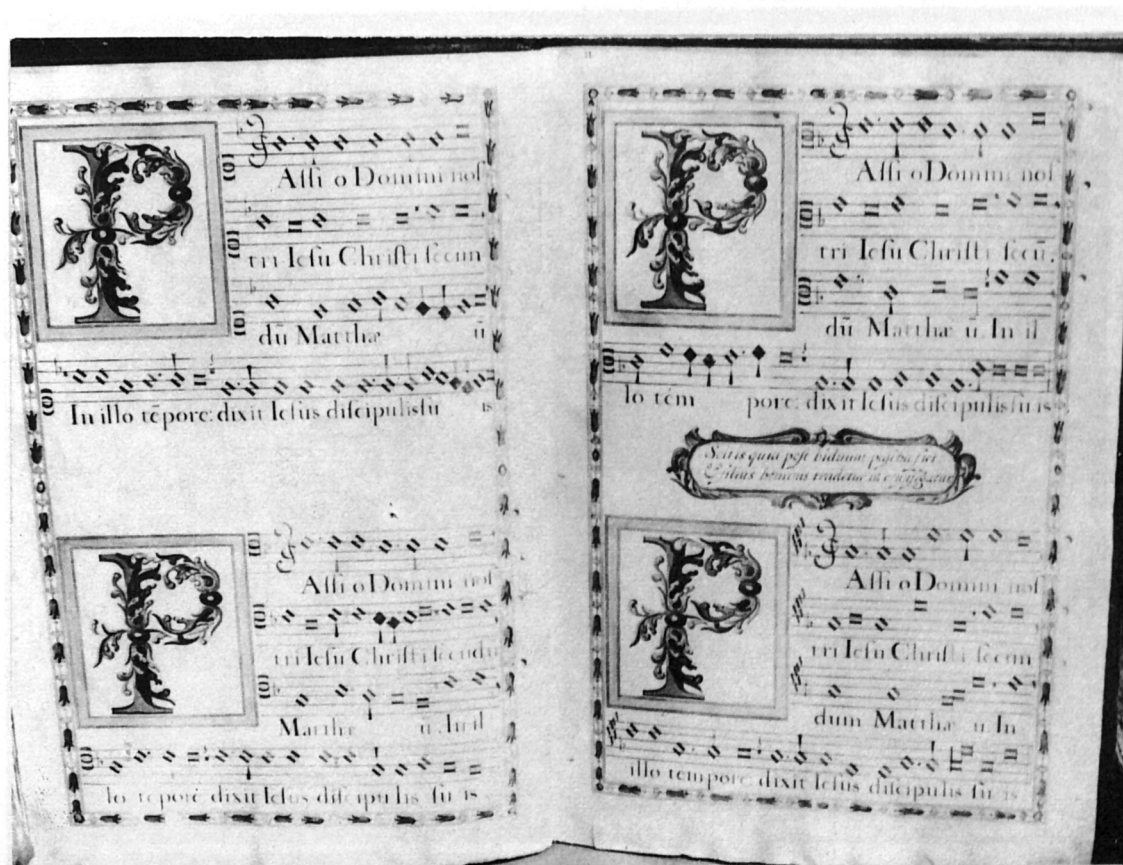 PAssi o Domini nos
tri Iesu Christi secun
dū Matthæ ū
In illo tēpore: dixit Iesus discipulis sū is
PAssi o Domini nos
tri Iesu Christi secūdū
Matthæ ū. In il
lo tēpore dixit Iesus discipu lis su is
PAssi o Domini nos
tri Iesu Christi secū.
dū Matthæ ū. In il
lo tēm pore: dixit Iesus discipulis su is
Scitis quia post biduum pascha fiet
Filius hominis tradetur
PAssi o Domini nos
tri Iesu Christi secun
dum Matthæ ū In
illo tempore dixit Iesus discipulis su is